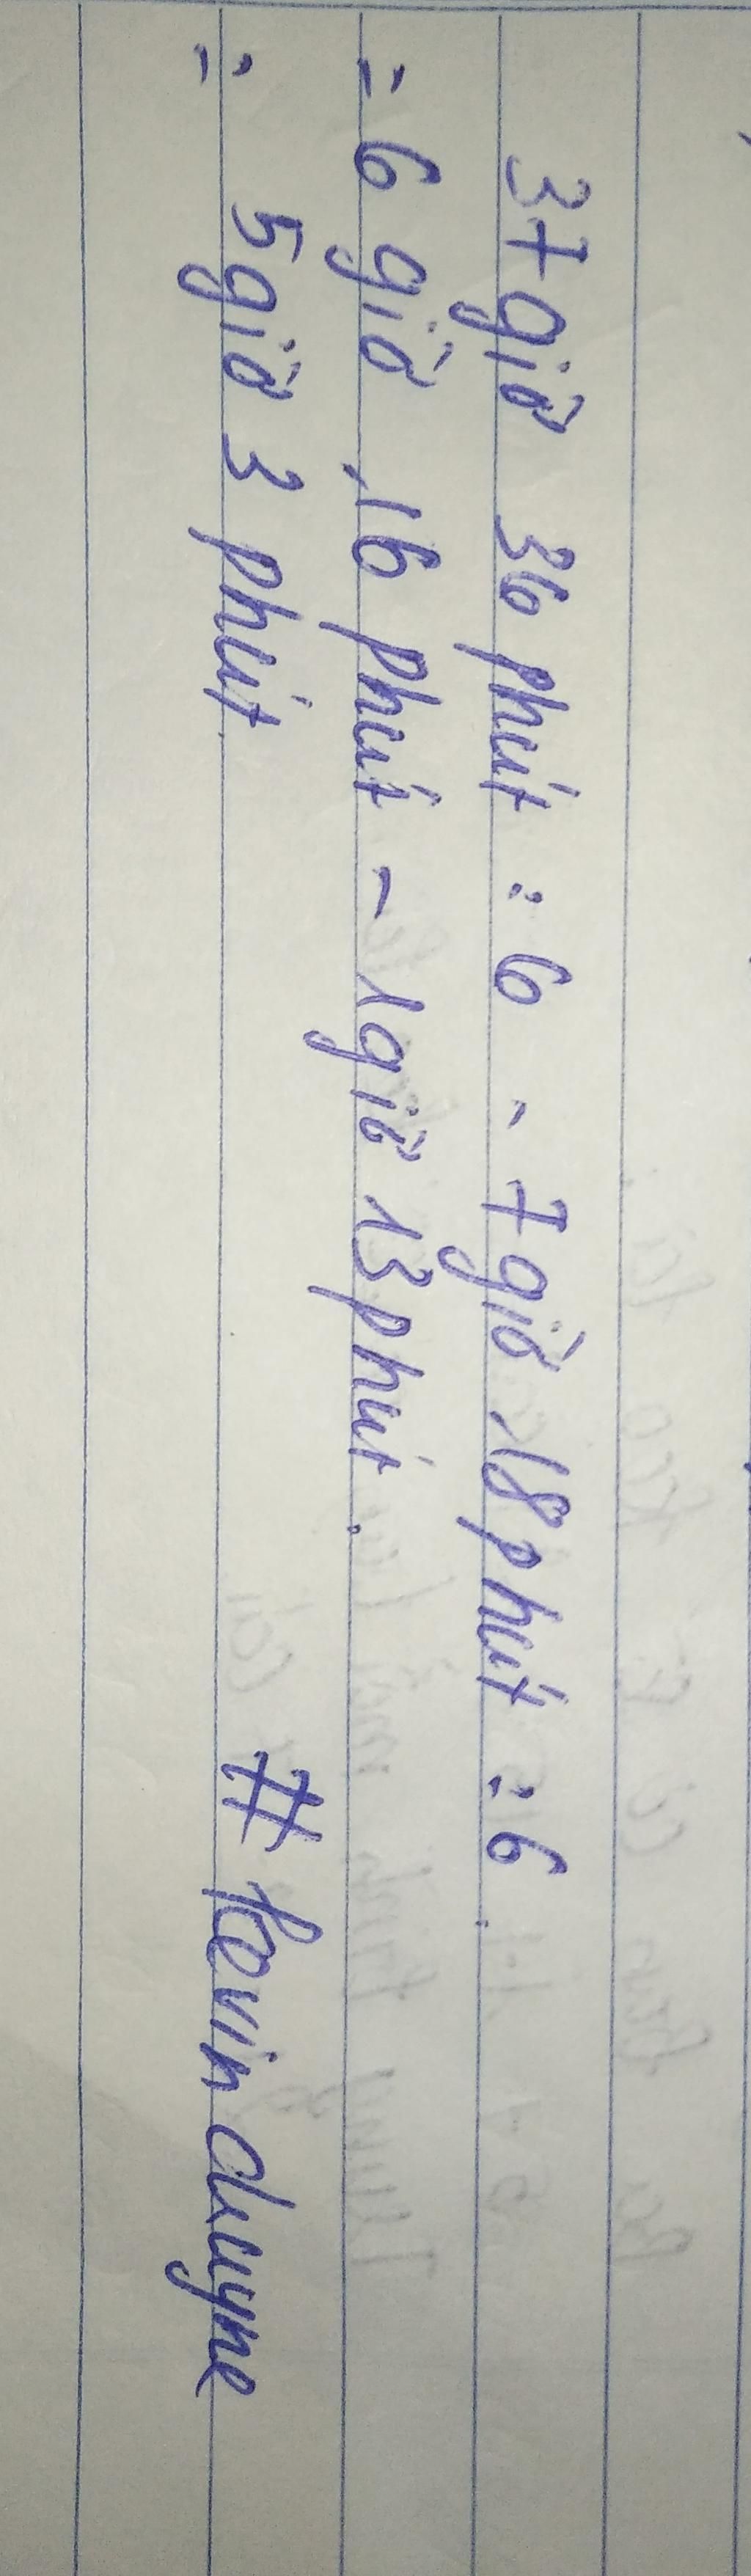 37 giờ 36 phút : 6 - 7 giờ 18 phút : 6
= 6 giờ 16 phút - 1 giờ 13 phút.
= 5 giờ 3 phút.
# kevin duyne